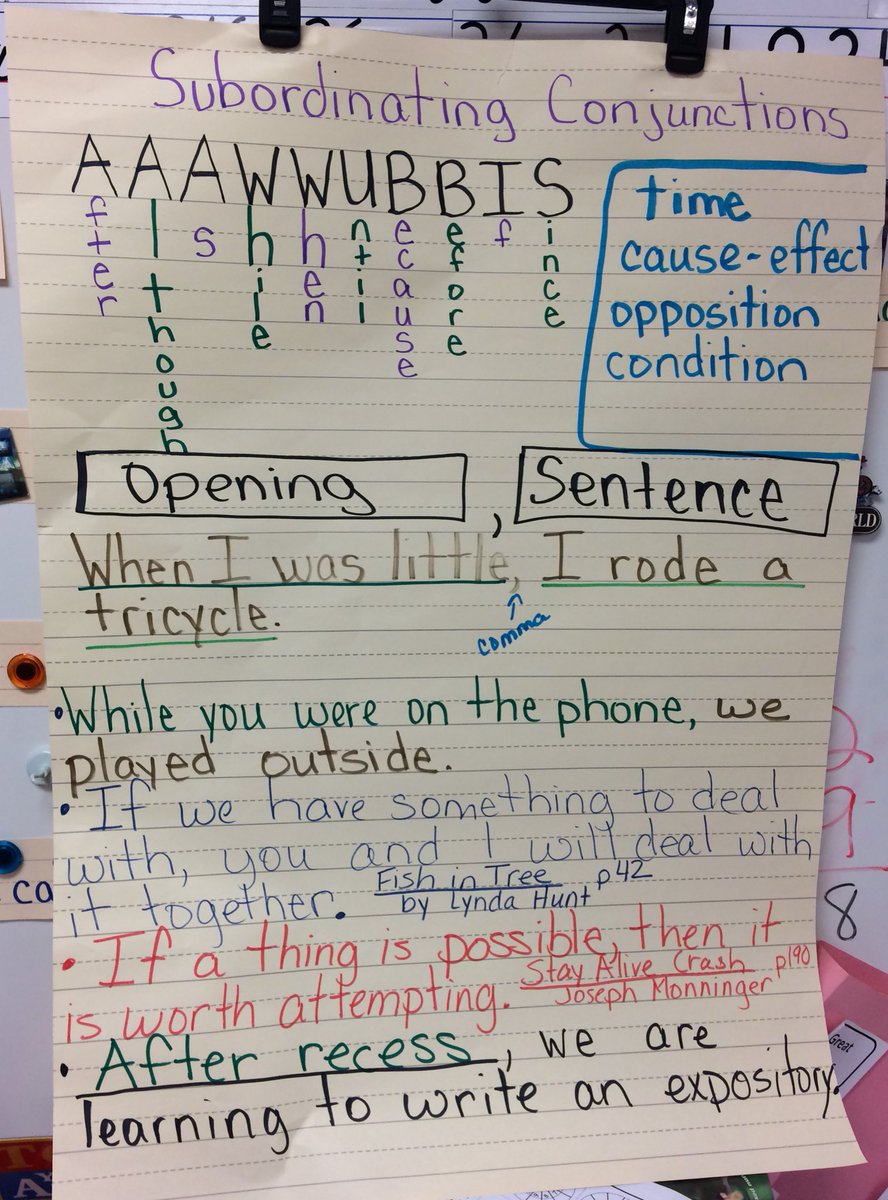 Subordinating Conjunctions
AAAWWUBBIS
After
Although
As
While
When
Until
Because
Before
If
Since
time
cause-effect
opposition
condition
Opening , Sentence
When I was little, I rode a
tricycle.
comma
•While you were on the phone, we
played outside.
• If we have something to deal
with, you and I will deal with
it together. Fish in Tree p42
by Lynda Hunt
• If a thing is possible, then it
is worth attempting. Stay Alive Crash p190
Joseph Monninger
• After recess, we are
learning to write an expository.
8
ca
Great